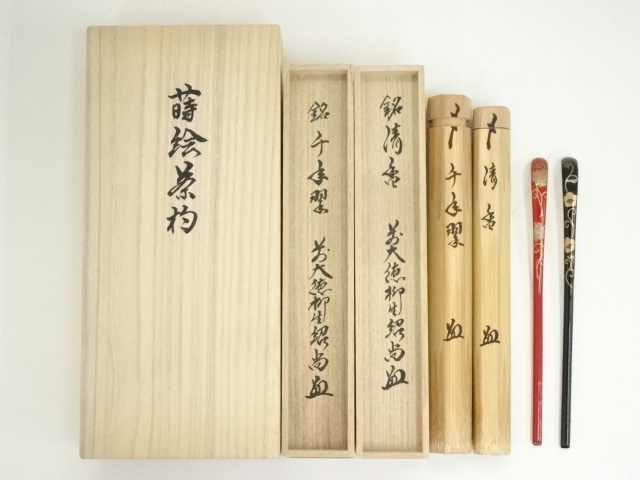 蒔絵茶杓
銘 千年翠
前大徳柳生紹尚
銘 清香
前大徳柳生紹尚
千年翠
清香